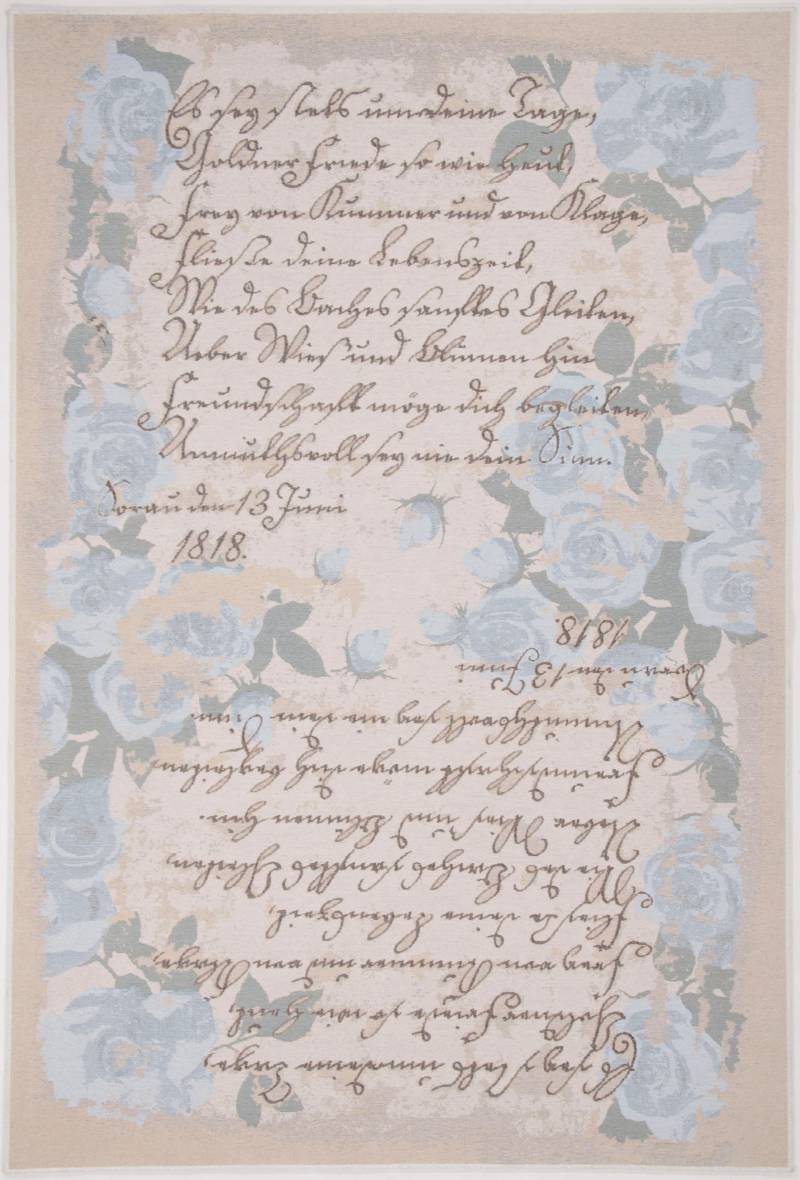 Es sey stets um deine Tage,
Goldner Friede so wie Heut,
Frey von Kummer und von Klage,
Fließe deine Lebenszeit,
Wie des Baches sanftes Gleiten,
Ueber Wies und Blumen hin
Freundschaft möge dich begleiten,
Unmuthsvoll sey nie dein Sinn.
Sorau den 13 Juni
1818.
Es sey stets um deine Tage,
Goldner Friede so wie Heut,
Frey von Kummer und von Klage
Fließe deine Lebenszeit,
Wie des Baches sanftes Gleiten
Ueber Wies und Blumen hin.
Freundschaft möge dich begleiten
Unmuthsvoll sey nie dein Sinn.
Sorau den 13 Juni
1818.